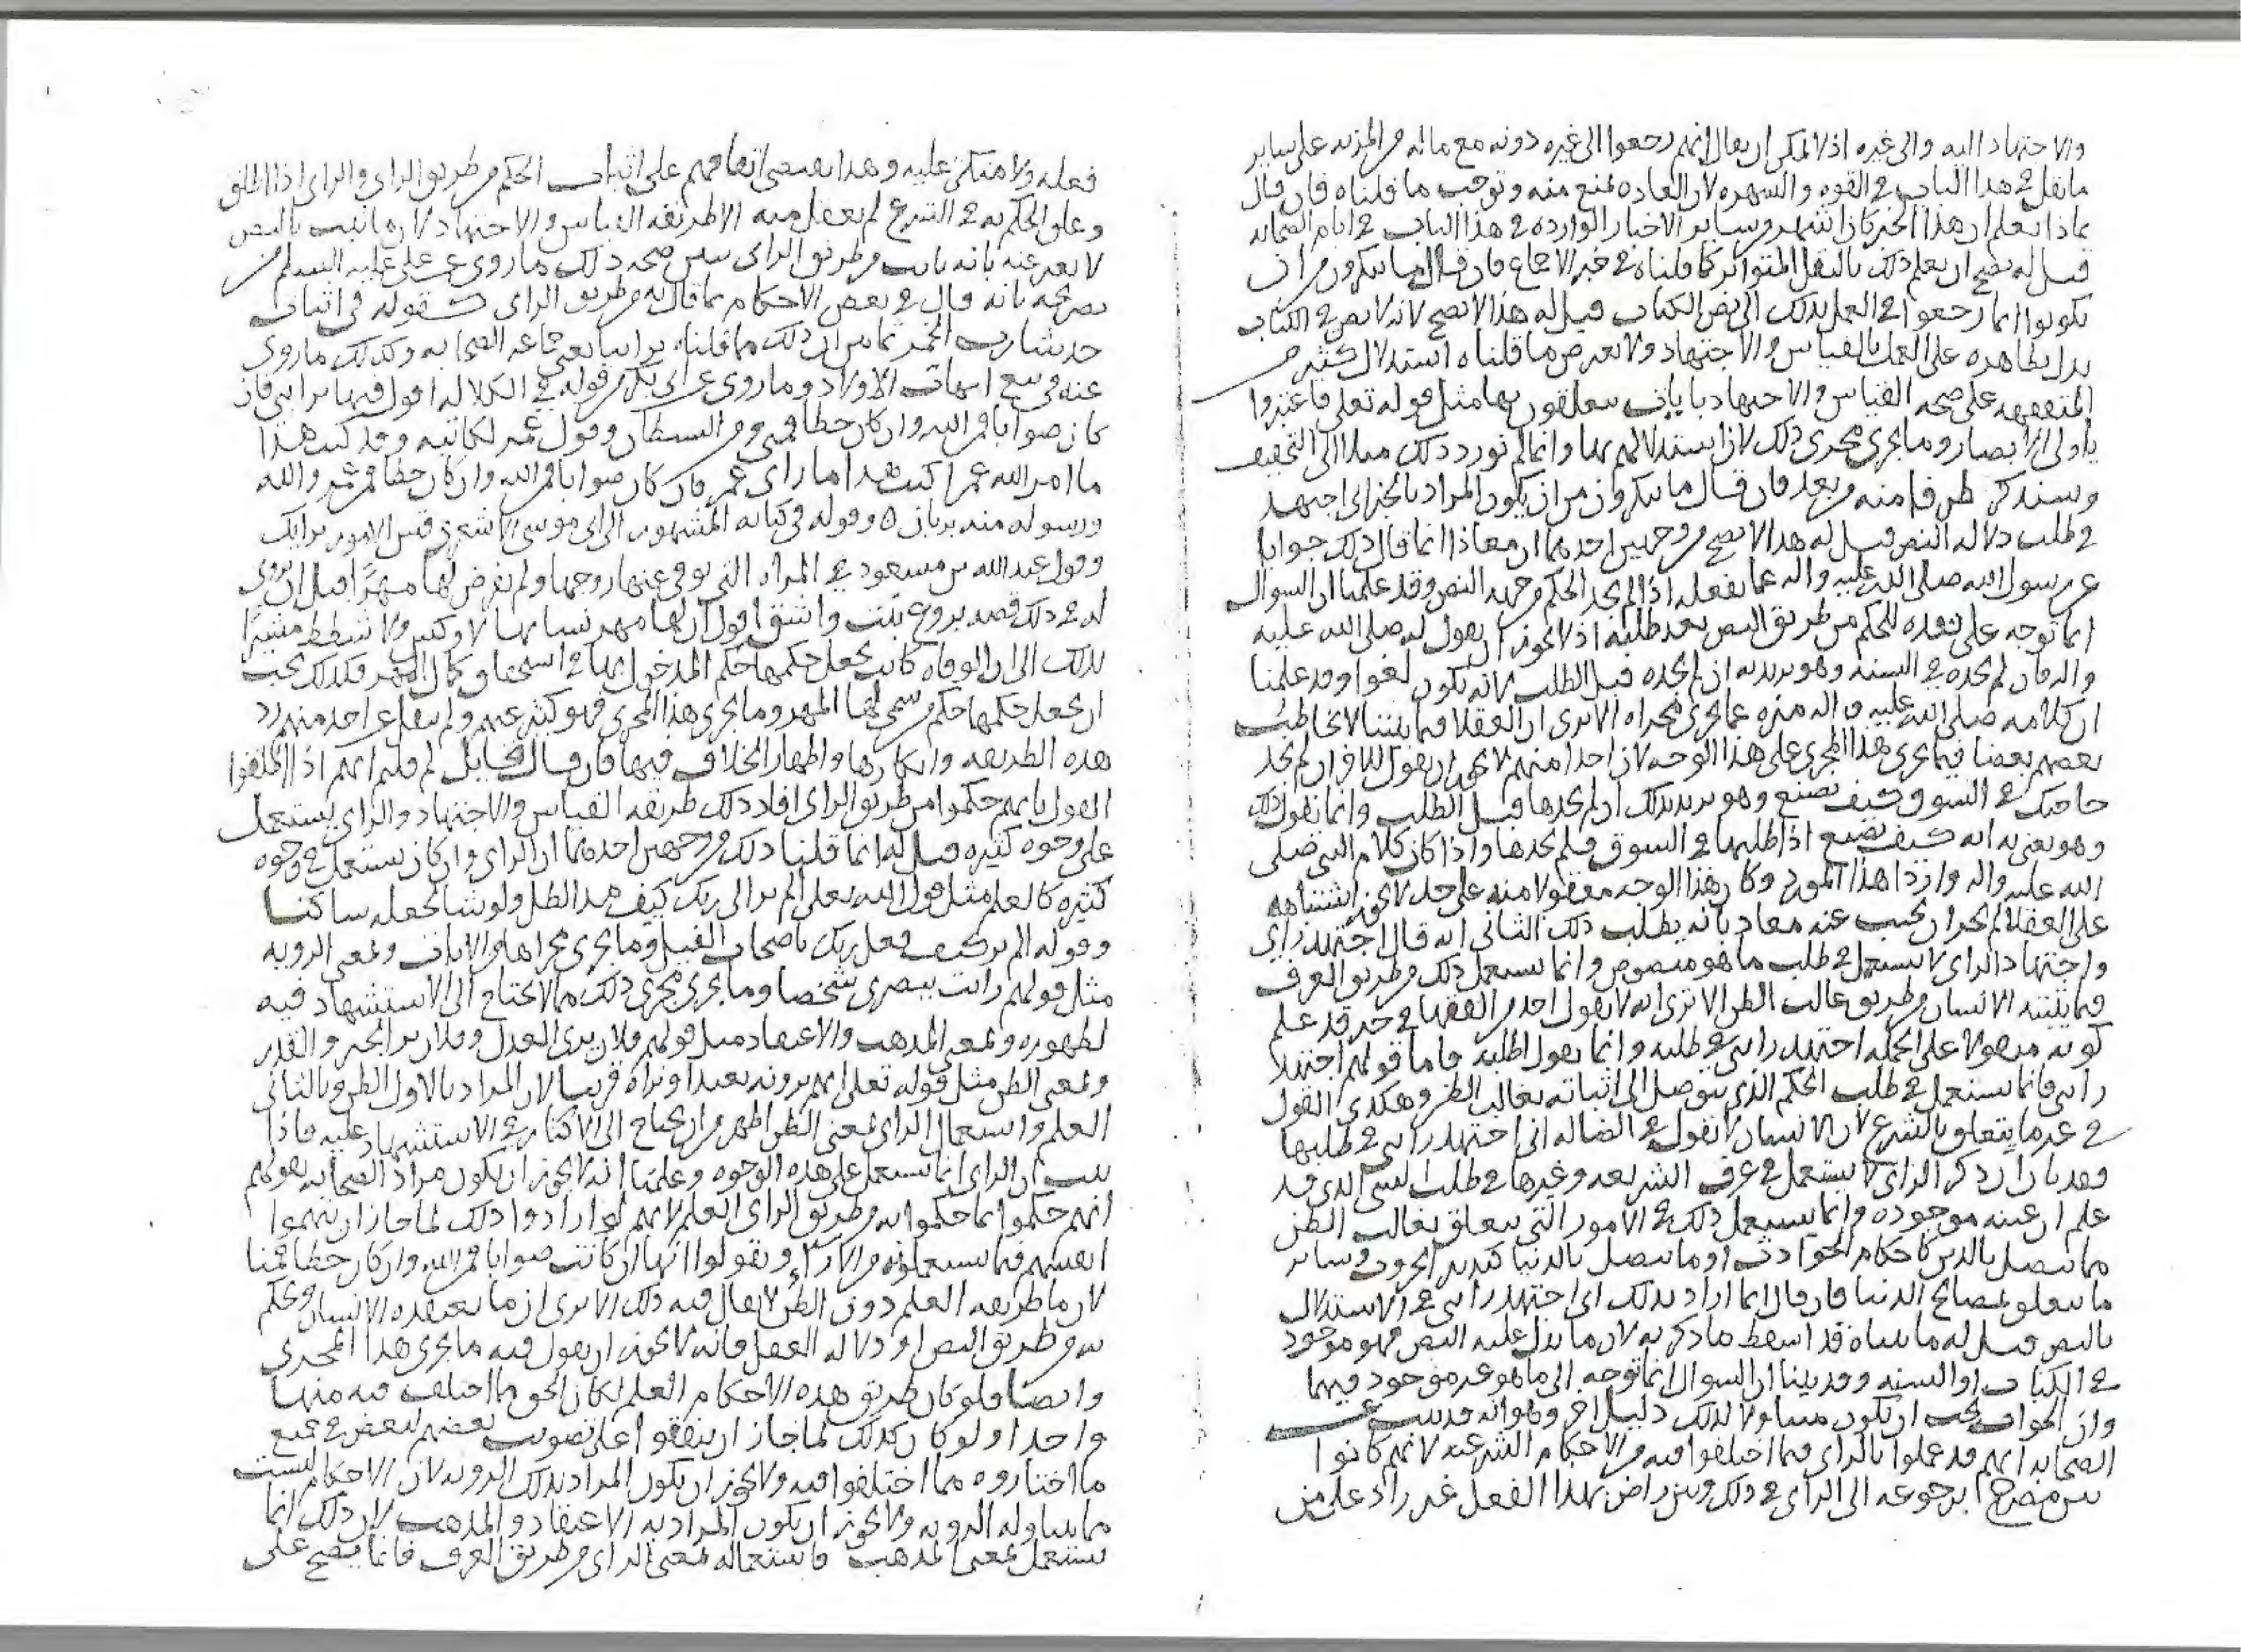 والاجتهاد اليه والى غيره اذ لا يمكن ان يقال انهم رجعوا الى غيره دونه مع ماله من المزيه على ساير
ما نقل في هذا الباب في القوه والشهره لان العاده تمنع منه وتوجب ما قلناه فان قال
بماذا نعلم ان هذا الخبر كان اشهر من ساير الاخبار الوارده في هذا الباب في ايام الصحابه
قيل له يصح ان يعلم ذلك بالنقل المتواتر كما قلناه في خبر الاجماع فان قال ما ينكرون من ان
يكونوا انما رجعوا في العمل بذلك الى نص الكتاب قيل له هذا لا يصح لانه لا نص في الكتاب
يدل بظاهره على العمل بالقياس والاجتهاد ولا يعترض ما قلناه استدلال كثير من
المتفقهه على صحه القياس والاجتهاد بايات يتعلقون بها مثل قوله تعلى فاعتبروا
ياولى الابصار وما يجرى مجرى ذلك لان استدلالهم بها وانما لم نورد ذلك ميلا الى التخفيف
وسنذكر طرفا منه من بعد فان قال ما ينكرون من ان يكون المراد بالخبر انى اجتهد
في طلب دلاله النص قيل له هذا لا يصح من وجهين احدهما ان معاذا انما قال ذلك جوابا
عن رسول الله صلى الله عليه واله عما يفعله اذا لم يجد الحكم من جهه النص وقد علمنا ان السوال
انما توجه على فقده للحكم من طريق النص بعد طلبه اذ لا يجوز ان يقول له صلى الله عليه
واله فان لم تجده في السنه وهو يريد به ان لم تجده قبل الطلب لانه يكون لغوا وقد علمنا
ان كلامه صلى الله عليه واله منزه عما يجرى مجراه الا ترى ان العقلا فيما بيننا لا يخاطب
بعضهم بعضا فيما يجرى هذا المجرى على هذا الوجه لان احدا منهم لا يجوز ان يقول للاخر ان لم تجد
حاجتك في السوق كيف تصنع وهو يريد بذلك ان لم تجدها قبل الطلب وانما يقول ذلك
وهو يعنى به انه كيف تصنع اذا طلبها في السوق فلم تجدها واذا كان كلام النبي صلى
الله عليه واله واردا هذا المورد وكان هذا الوجه معقولا منه على حد لا يجوز اشتباهه
على العقلا لم يجز ان يجيب عنه معاذ بانه يطلب ذلك الثاني انه قال اجتهد راى
واجتهاد الراى لا يستعمل في طلب ما هو منصوص وانما يستعمل ذلك من طريق العرف
فيما يثبته الانسان من طريق غالب الظن الا ترى انه لا يقول احد من الفقها في خبر قد علم
كونه منقولا على الجمله اجتهد رايي في طلبه وانما يقول اطلبه فاما قولهم اجتهد
رايي فانما يستعمل في طلب الحكم الذى يتوصل الى اثباته بغالب الظن وهكذى القول
في غير ما يتعلق بالشرع لان الانسان لا يقول في الضاله انى اجتهد رايي في طلبها
فقد بان ان ذكر الراى لا يستعمل في عرف الشريعه وغيرها في طلب الشى الذى قد
علم ان عينه موجوده وانما يستعمل ذلك في الامور التى يتعلق بغالب الظن
مما يتصل بالدين كاحكام الحوادث او ما يتصل بالدنيا كتدبير الحروب وساير
ما يتعلق بمصالح الدنيا فان قال انما اراد بذلك اى اجتهد رايي في الاستدلال
بالنص قيل له ما بيناه قد اسقط ما ذكرته لان ما يدل عليه النص فهو موجود
في الكتاب او السنه وقد بينا ان السوال انما توجه الى ما هو غير موجود فيهما
وان الجواب يجب ان يكون متناولا لذلك دليل اخر وهو انه قد ثبت عن
الصحابه انهم قد عملوا بالراى فيما اختلفوا فيه من الاحكام الشرعيه لانهم كانوا
بين مصرح برجوعه الى الراى في ذلك وبين راض بهذا الفعل غير راد على من
فعله ولا منكر عليه وهذا يقتضى اتفاقهم على اثبات الحكم من طريق الراى والراى اذا اطلق
وعلق الحكم به في الشرع لم يعقل منه الا طريقه القياس والاجتهاد لان ما ثبت بالنص
لا يعبر عنه بانه ثابت من طريق الراى يبين صحه ذلك ما روى عن على عليه السلم من
تصريحه بانه قال في بعض الاحكام بما قال به من طريق الراى كقوله في اثبات
حد شارب الخمر ان ذلك مما قلناه براينا يعنى جماعه الصحابه وكذلك ما روى
عنه في بيع امهات الاولاد وما روى عن ابى بكر من قوله في الكلاله اقول فيها برايي فان
كان صوابا فمن الله وان كان خطا فمنى ومن الشيطان وقول عمر لكاتبه وقد كتب هذا
ما امر الله عمر اكتب هذا ما راى عمر فان كان صوابا فمن الله وان كان خطا فمن عمر والله
ورسوله منه بريان ه وقوله في كتابه المشهور الى ابى موسى الاشعرى قس الامور برايك
وقول عبد الله بن مسعود في المراه التى توفى عنها زوجها ولم يفرض لها مهرًا قبل ان يروى
له في ذلك قصه بروع بنت واشق اقول ان لها مهر نسايها لا وكس ولا شطط مشيرًا
بذلك الى ان الوفاه كانت تجعل حكمها حكم المدخول بها في استحقاق كمال المهر فكذلك يجب
ان يجعل حكمها حكم من سمى لها المهر وما يجرى هذا المجرى فهو كثير عنهم ولم ينقل عن احد منهم رد
هذه الطريقه وانكارها واظهار الخلاف فيها فان قال قايل لم قلتم انهم اذا اطلقوا
القول بانهم حكموا من طريق الراى افاد ذلك طريقه القياس والاجتهاد والراى يستعمل
على وجوه كثيره قيل له انما قلنا ذلك من وجهين احدهما ان الراى وان كان يستعمل في وجوه
كثيره كالعلم مثل قول الله تعلى الم تر الى ربك كيف مد الظل ولو شا لجعله ساكنا
وقوله الم تر كيف فعل ربك باصحاب الفيل وما يجرى مجراها من الايات وبمعنى الرويه
مثل قولهم رايت ببصرى شخصا وما يجرى مجرى ذلك مما لا يحتاج الى الاستشهاد فيه
لظهوره وبمعنى المذهب والاعتقاد مثل قولهم فلان يرى العدل وفلان يرا الجبر والقدر
وبمعنى الظن مثل قوله تعلى انهم يرونه بعيدا ونراه قريبا لان المراد بالاول الظن وبالثانى
العلم واستعمال الراى بمعنى الظن اظهر من ان يحتاج الى الاكثار في الاستشهاد عليه فاذا
ثبت ان الراى انما يستعمل على هذه الوجوه وعلمنا انه لا يجوز ان يكون مراد الصحابه بقولهم
انهم حكموا بما حكموا به من طريق الراى العلم لانهم لو ارادوا ذلك لما جاز ان يتهموا
انفسهم فيما يستعملونه من الاراء ويقولوا انها ان كانت صوابا فمن الله وان كان خطا فمنا
لان ما طريقه العلم دون الظن لا يقال فيه ذلك الا ترى ان ما يعتقده الانسان ويحكم
به من طريق النص او دلاله العقل فانه لا يجوز ان يقول فيه ما يجرى هذا المجرى
وايضا فلو كان طريق هذه الاحكام العلم لكان الحق مما اختلف فيه منها
واحدا ولو كان كذلك لما جاز ان يتفقوا على تصويب بعضهم لبعض في جميع
ما اختاروه مما اختلفوا فيه ولا يجوز ان يكون المراد بذلك الرويه لان الاحكام ليست
مما يتناوله الرويه ولا يجوز ان يكون المراد به الاعتقاد والمذهب لان ذلك انما
يستعمل بمعنى المذهب فاستعماله بمعنى الراى من طريق العرف فانما يصح على